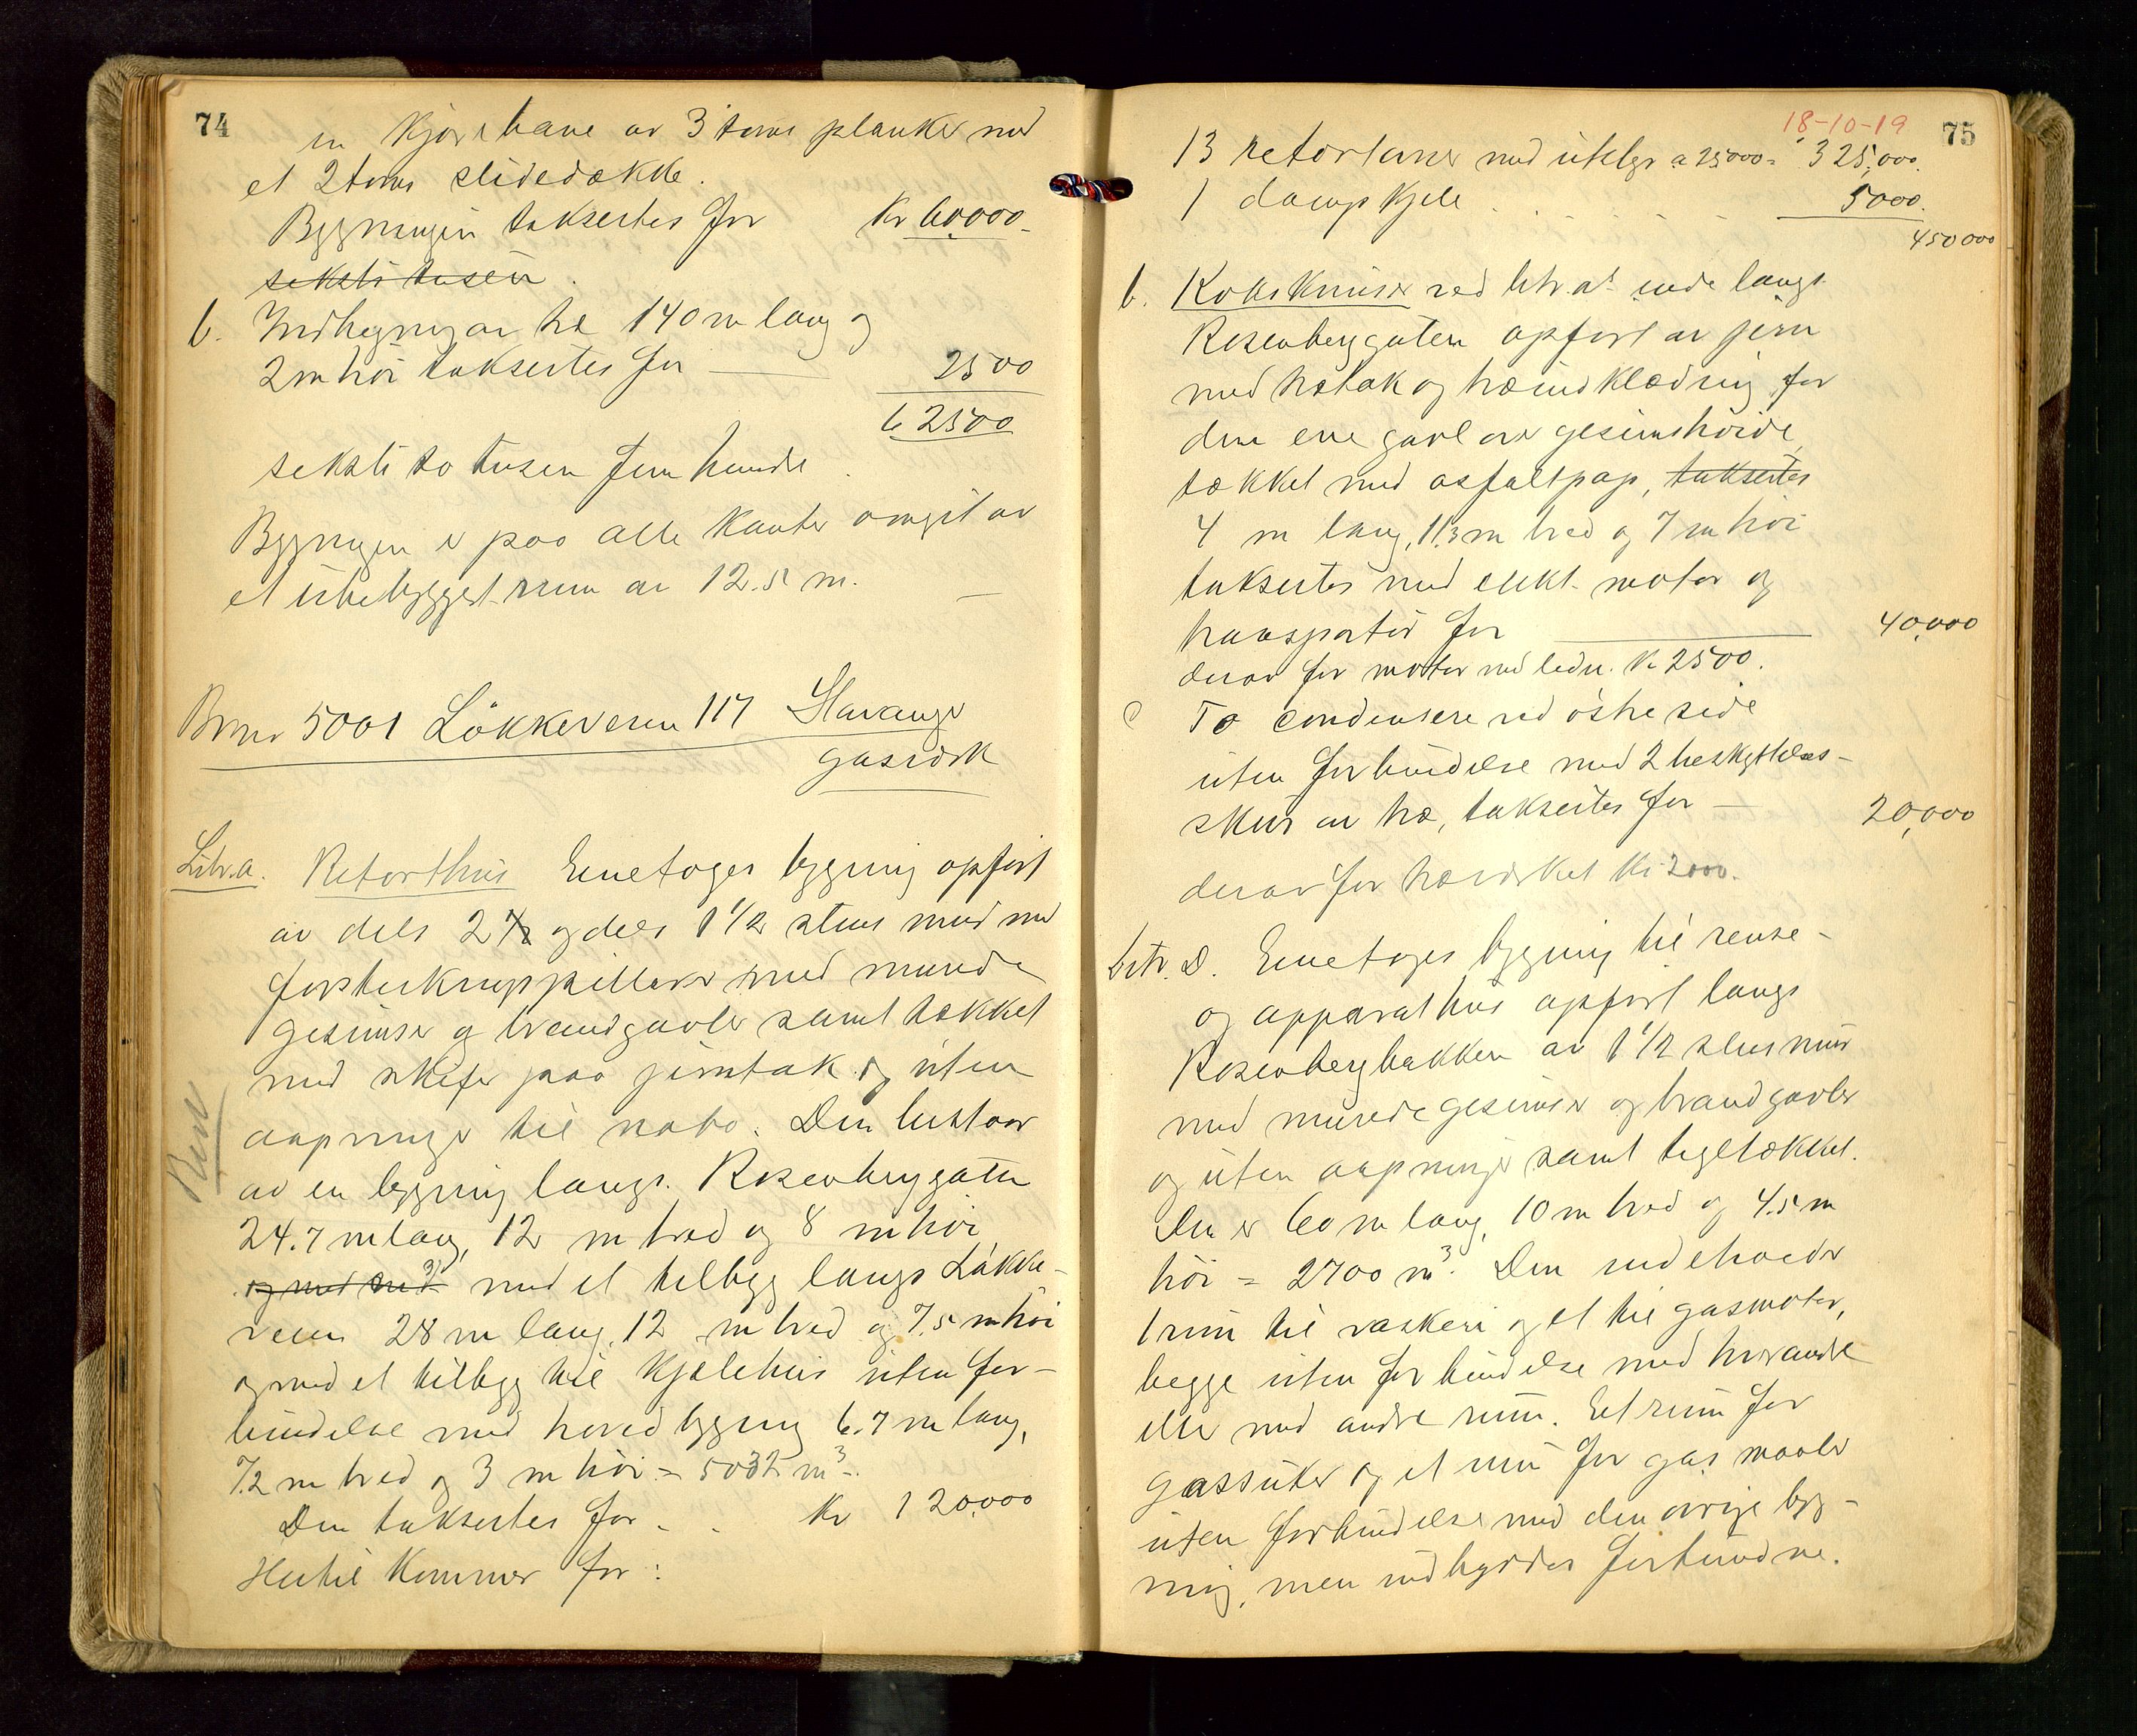 74
en kjørebane av 3 toms planker med
et 2 toms slidedække.
Bygningen taksertes for Kr 60,000.-
seksti tusen.
b. Indhegning av træ 140 m lang og
2 m høi taksertes for 2500
62500
seksti to tusen fem hundre.
Bygningen er paa alle kanter omgit av
et ubebygget rum av 12.5 m. —
Brnr 5001 Løkkeveien 117 Stavanger
gasverk
Litr. a. Retorthus Enetages bygning opført
av dels 2 1/2 og dels 1 1/2 stens mur med
forsterkningspillarer med murede
gesimser og brandgavler samt tækket
med skifer paa jerntak og uten
aapninger til nabo. Den bestaar
av en bygning langs Rosenberggaten
24.7 m lang, 12 m bred og 8 m høi,
og med med et tilbygg langs Løkke-
veien 28 m lang, 12 m bred og 7.5 m høi
og med et tilbygg til kjelehus uten for-
bindelse med hovedbygning 6.7 m lang,
7.2 m bred og 3 m høi = 5032 m³.
Den taksertes for - - Kr 120,000
Hertil kommer for:
18-10-19
75
13 retortovner med utstyr a 25000 = 325,000.
1 dampkjele 5000.
450000
b. Koksknuser ved litr. a's ende langs
Rosenberggaten opført av jern
med trætak og træindklædning for
den ene gavl over gesimshøide,
tækket med asfaltpap, taksertes
4 m lang, 11.3 m bred og 7 m høi
taksertes med elekt. motor og
transportør for 40,000
derav for motor med ledn. Kr 2500.
c To condensere ved østre side
uten forbindelse med 2 beskyttelses-
skur av træ, taksertes for — 20,000
derav for træverket Kr 2000.
Litr. D. Enetages bygning til rense-
og apparathus opført langs
Rosenbergbakken av 1 1/2 stens mur
med murede gesimser og brandgavler
og uten aapninger samt tegltækket.
Den er 60 m lang, 10 m bred og 4.5 m
høi = 2700 m³. Den indeholder
1 rum til vaskeri og et til gasmotor,
begge uten forbindelse med hverandre
eller med andre rum. Et rum for
gassuker og et rum for gasmaaler
uten forbindelse med den øvrige byg-
ning, men indbyrdes forbundne.